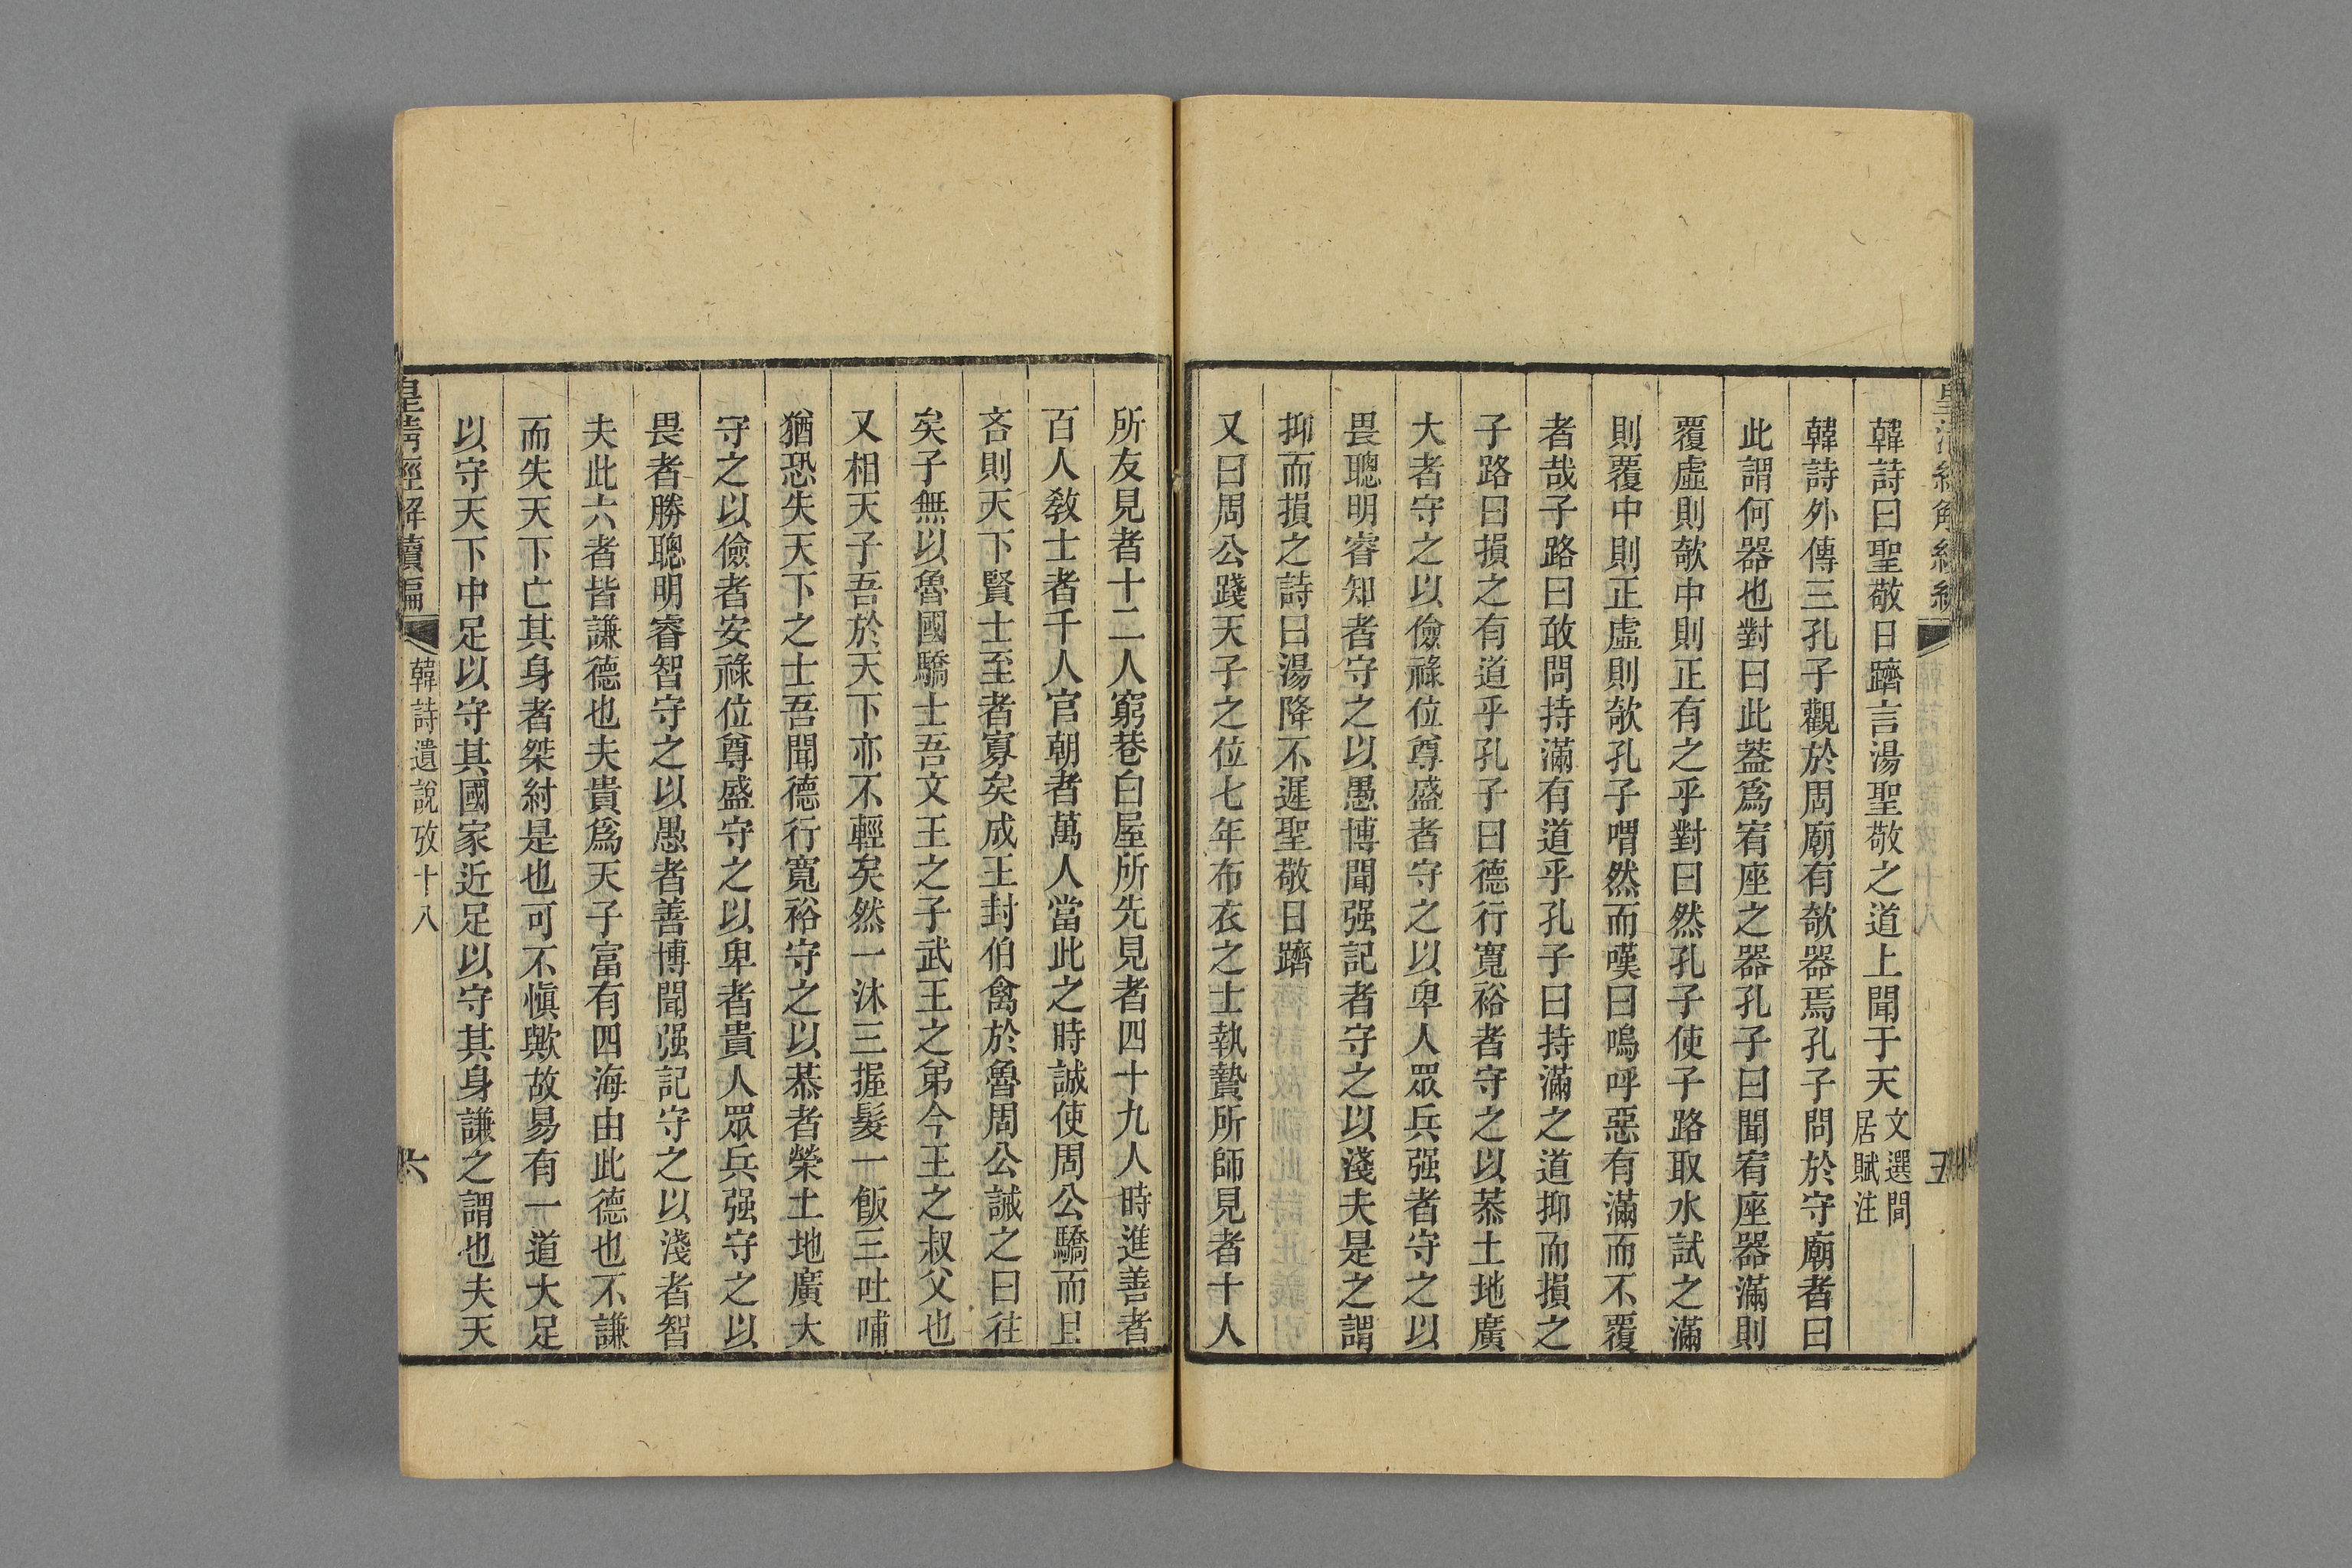 韓詩曰聖敬日躋言湯聖敬之道上聞于天文選閒居賦注
韓詩外傳三孔子觀於周廟有欹器焉孔子問於守廟者曰
此謂何器也對曰此葢爲宥座之器孔子曰聞宥座器滿則
覆虛則欹中則正有之乎對曰然孔子使子路取水試之滿
則覆中則正虛則欹孔子喟然而嘆曰嗚呼惡有滿而不覆
者哉子路曰敢問持滿有道乎孔子曰持滿之道抑而損之
子路曰損之有道乎孔子曰德行寬裕者守之以恭土地廣
大者守之以儉祿位尊盛者守之以卑人眾兵强者守之以
畏聰明睿知者守之以愚博聞强記者守之以淺夫是之謂
抑而損之詩曰湯降不遲聖敬日躋
又曰周公踐天子之位七年布衣之士執贄所師見者十人
五
所友見者十二人窮巷白屋所先見者四十九人時進善者
百人敎士者千人官朝者萬人當此之時誠使周公驕而且
吝則天下賢士至者寡矣成王封伯禽於魯周公誡之曰往
矣子無以魯國驕士吾文王之子武王之弟今王之叔父也
又相天子吾於天下亦不輕矣然一沐三握髮一飯三吐哺
猶恐失天下之士吾聞德行寬裕守之以恭者榮土地廣大
守之以儉者安祿位尊盛守之以卑者貴人眾兵强守之以
畏者勝聰明睿智守之以愚者善博聞强記守之以淺者智
夫此六者皆謙德也夫貴爲天子富有四海由此德也不謙
而失天下亡其身者桀紂是也可不愼歟故易有一道大足
以守天下中足以守其國家近足以守其身謙之謂也夫天
皇清經解續編
韓詩遺說攷十八
六